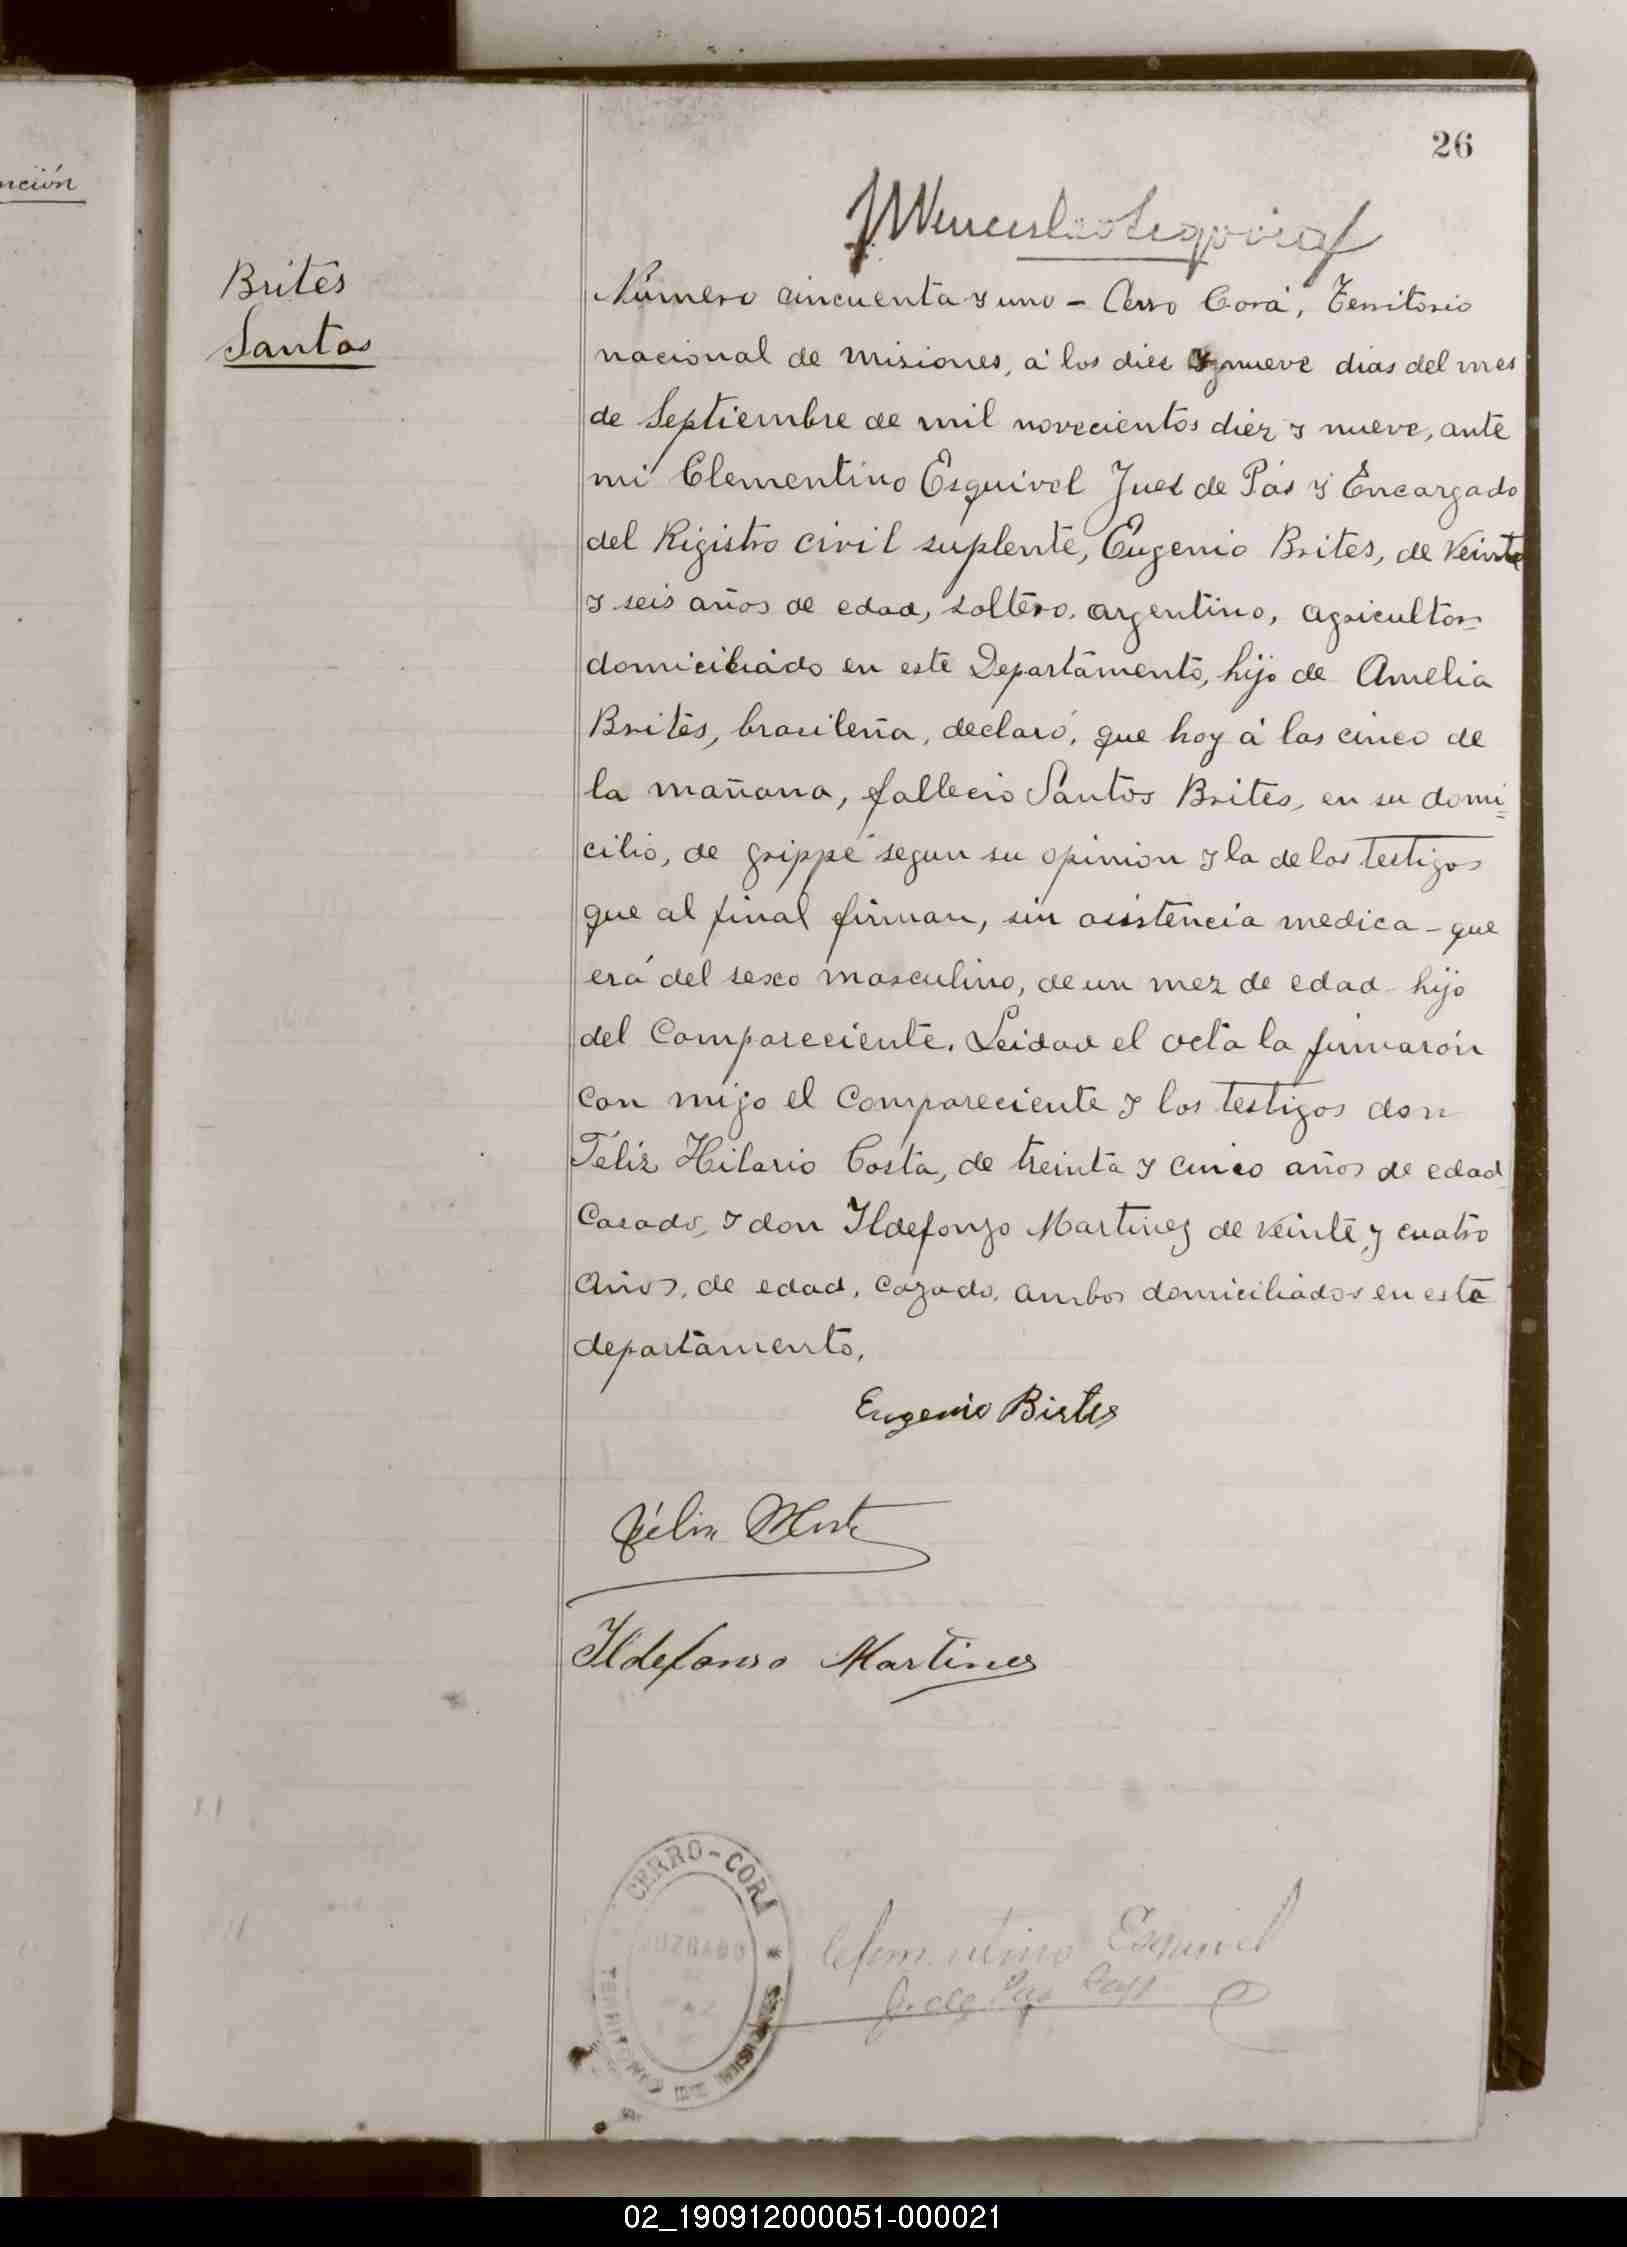 26
nción
Wenceslao Segovia
Brites
Santos
Número cincuenta y uno – Cerro Corá, Territorio
nacional de misiones, á los diez y nueve dias del mes
de Septiembre de mil novecientos diez y nueve, ante
mi Clementino Esquivel Juez de Pás y Encargado
del Rigistro civil suplente, Eugenio Brites, de veinte
y seis años de edad, soltero, argentino, agricultor=
domiciliado en este Departamento, hijo de Amelia
Brites, brasileña, declaró, que hoy á las cinco de
la mañana, fallecio Santos Brites, en su domi=
cilio, de grippe segun su opinion y la de los testigos
que al final firman, sin asistencia medica – que
erá del sexo masculino, de un mez de edad hijo
del Compareciente. Leidad el acta la firmarón
con migo el Compareciente y los testigos don
Feliz Hilario Costa, de treinta y cinco años de edad
Casado, y don Ildefonzo Martinez de veinte y cuatro
años, de edad, cazado, ambos domiciliados en este
departamento,
Eugenio Birtes
Félix
Ildefonso Martines
CERRO-CORA
JUZGADO
TERRITORIO DE MISIONES
Clementino Esquivel
J. de Paz Supt
02_190912000051-000021